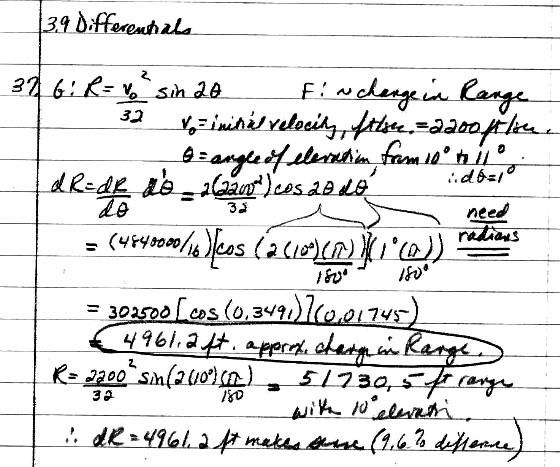 3.9 Differentials
37. G: R = v₀²/32 sin 2θ F: ~ change in Range
v₀ = initial velocity, ft/sec. = 2200 ft/sec.
θ = angle of elevation from 10° to 11°
∴ dθ = 1°
dR = dR/dθ dθ = 2(2200²)/32 cos 2θ dθ
need radians
= (4840000/16)[cos(2(10°)(π)/180°)](1°(π)/180°)
= 302500[cos(0.3491)](0.01745)
= 4961.2 ft. approx. change in Range.
R = 2200²/32 sin(2(10°)(π)/180) = 51730.5 ft range
with 10° elevation.
∴ dR = 4961.2 ft makes sense (9.6% difference)